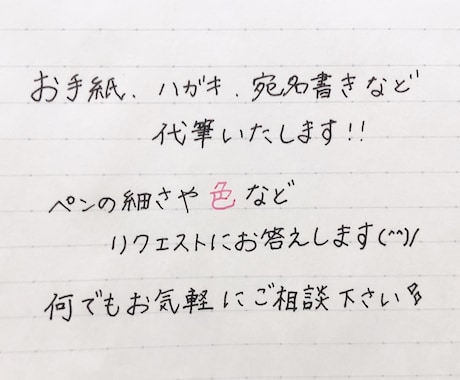 お手紙、ハガキ、宛名書きなど
代筆いたします!!
ペンの細さや色など
リクエストにお答えします(^^)/
何でもお気軽にご相談下さい